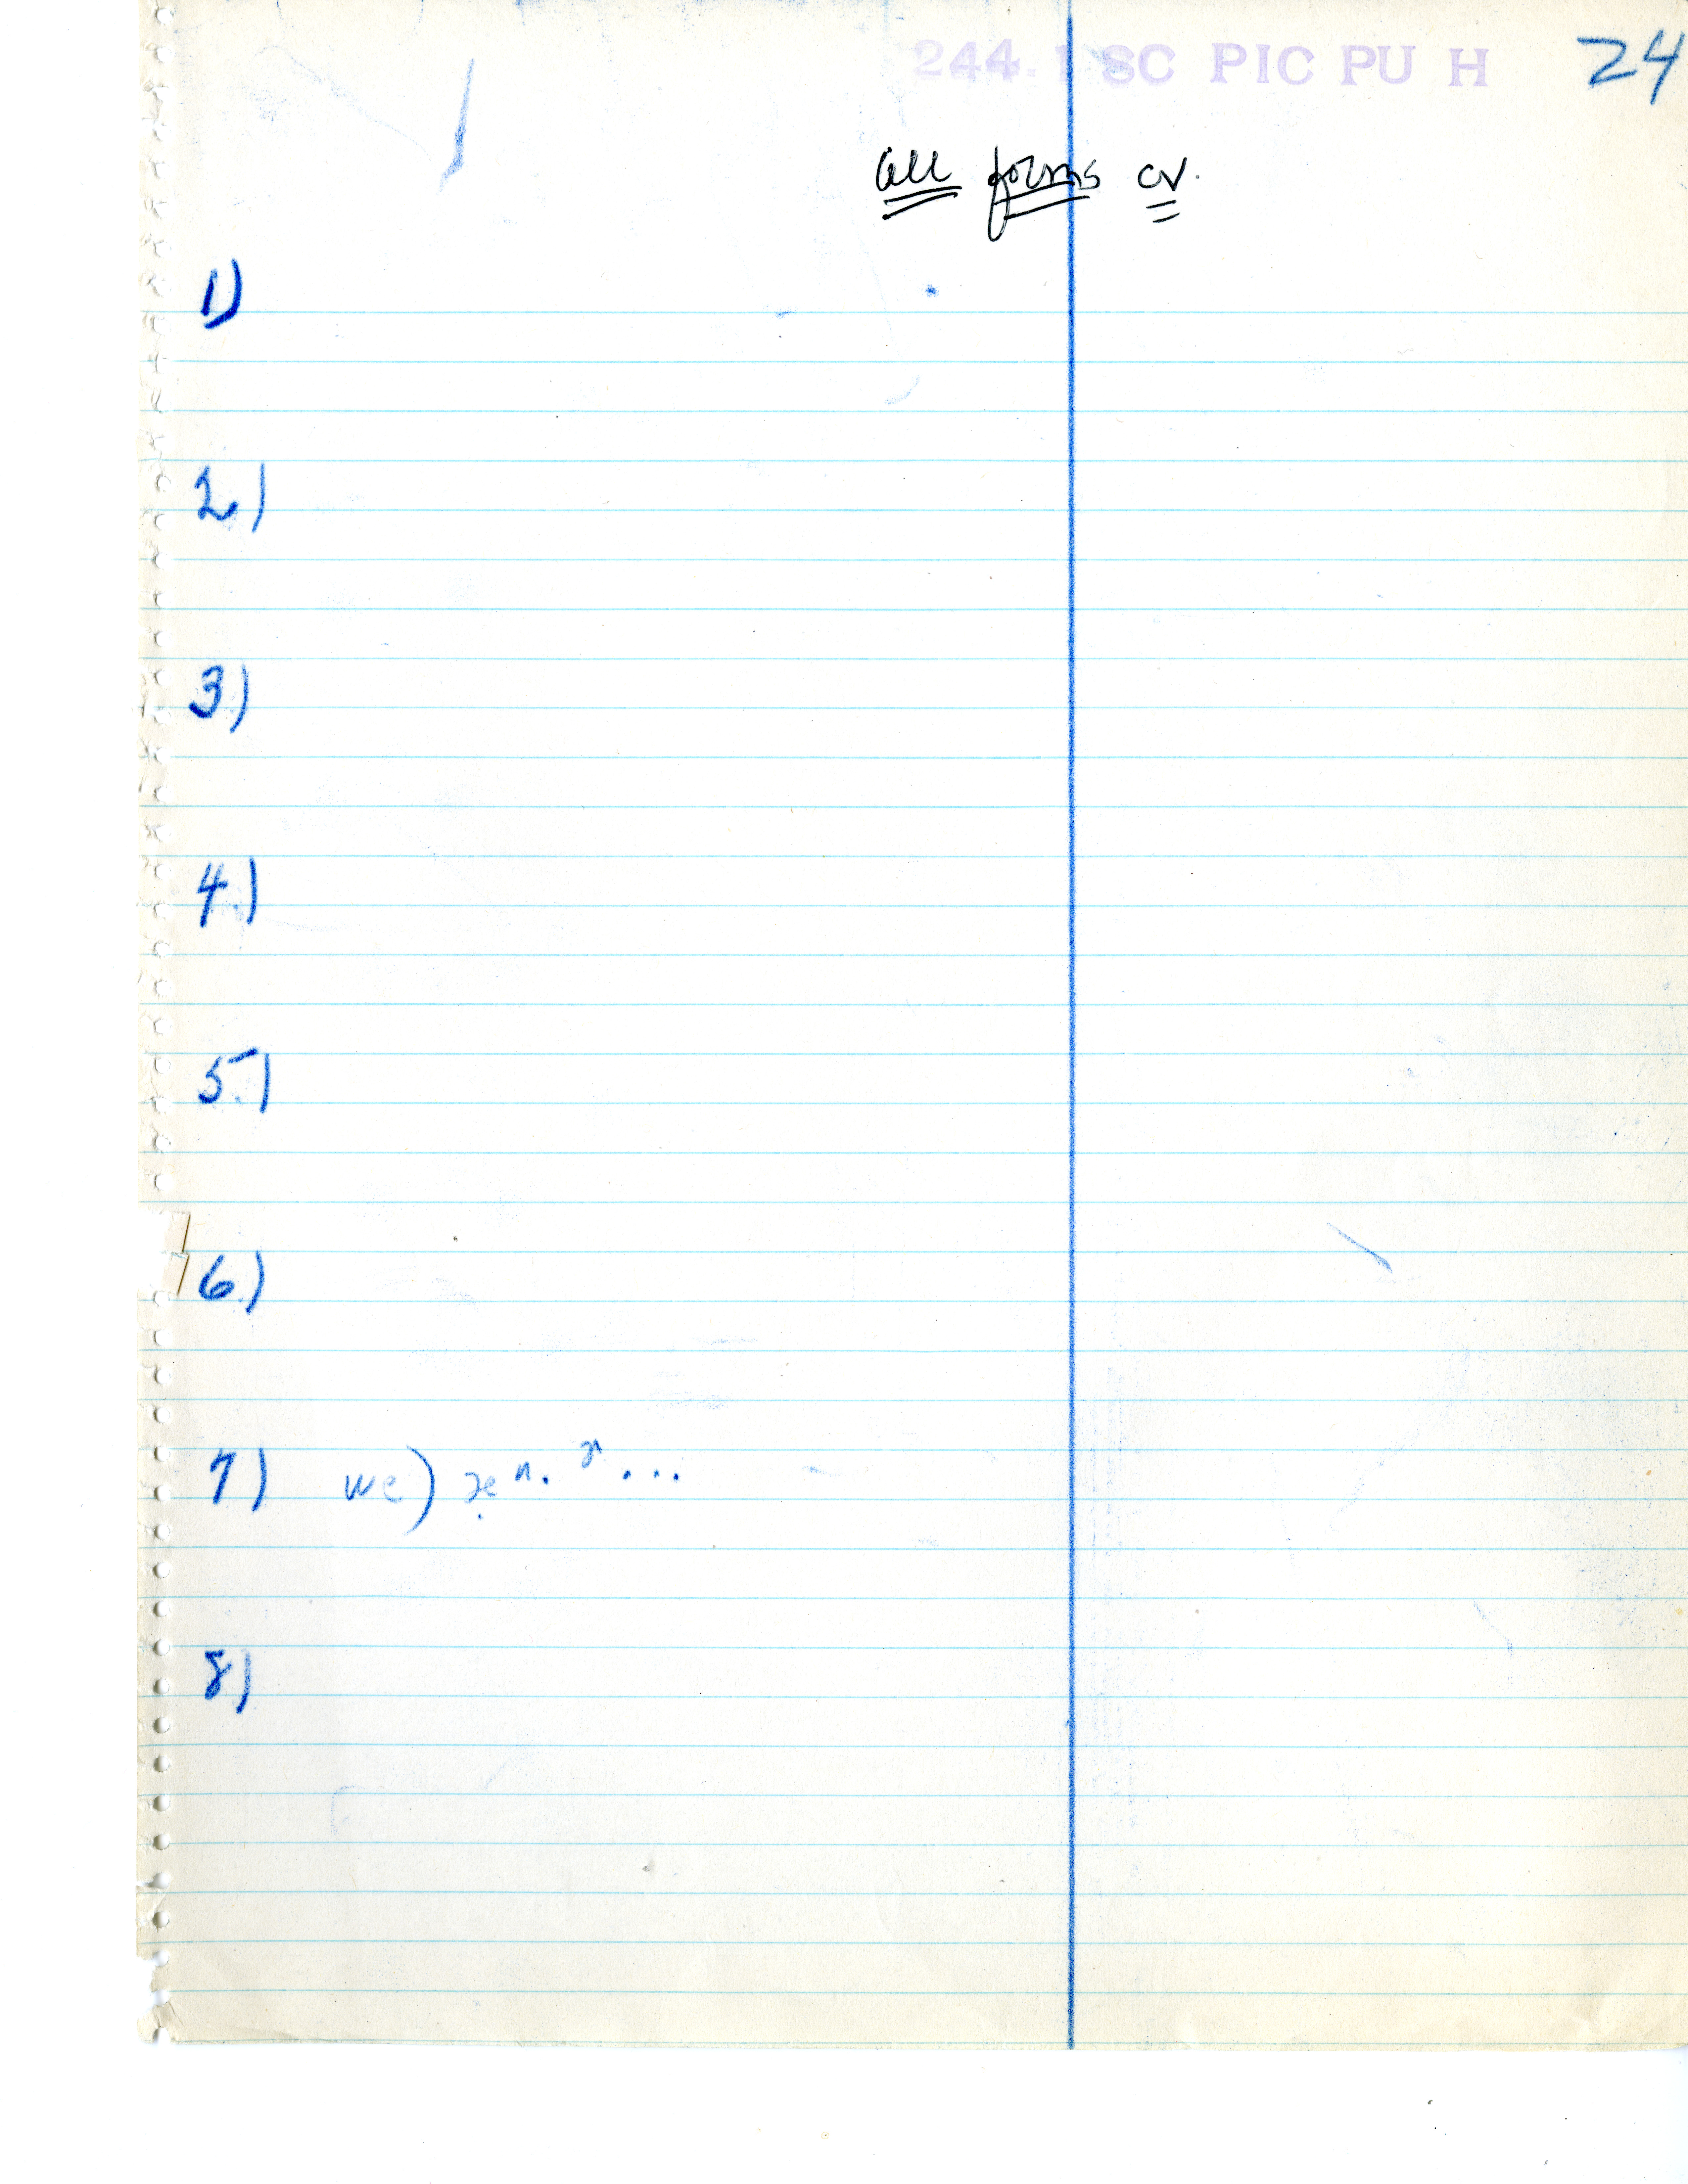 244.1 SC PIC PU H 24
all forms cv.
1)
2.)
3.)
4.)
5.)
6.)
7) we)
8)